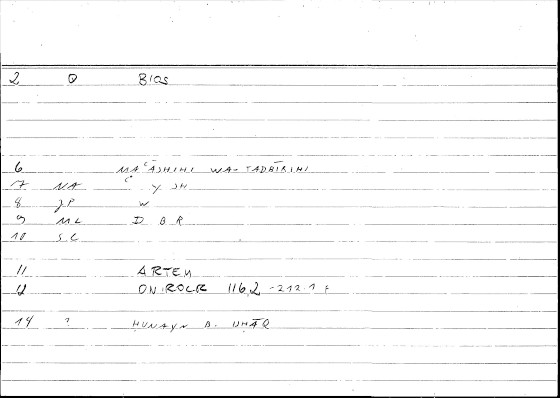 2 Q BIOS
6 MAʿĀSHIHI WA-TADBĪRIHI
7 NA ʿ Y SH
8 JP W
9 ML D B R
10 SC
11 ARTEM
12 ONIROCR 116,2 -212.1 f
14 ? ḤUNAYN B. ISḤĀQ